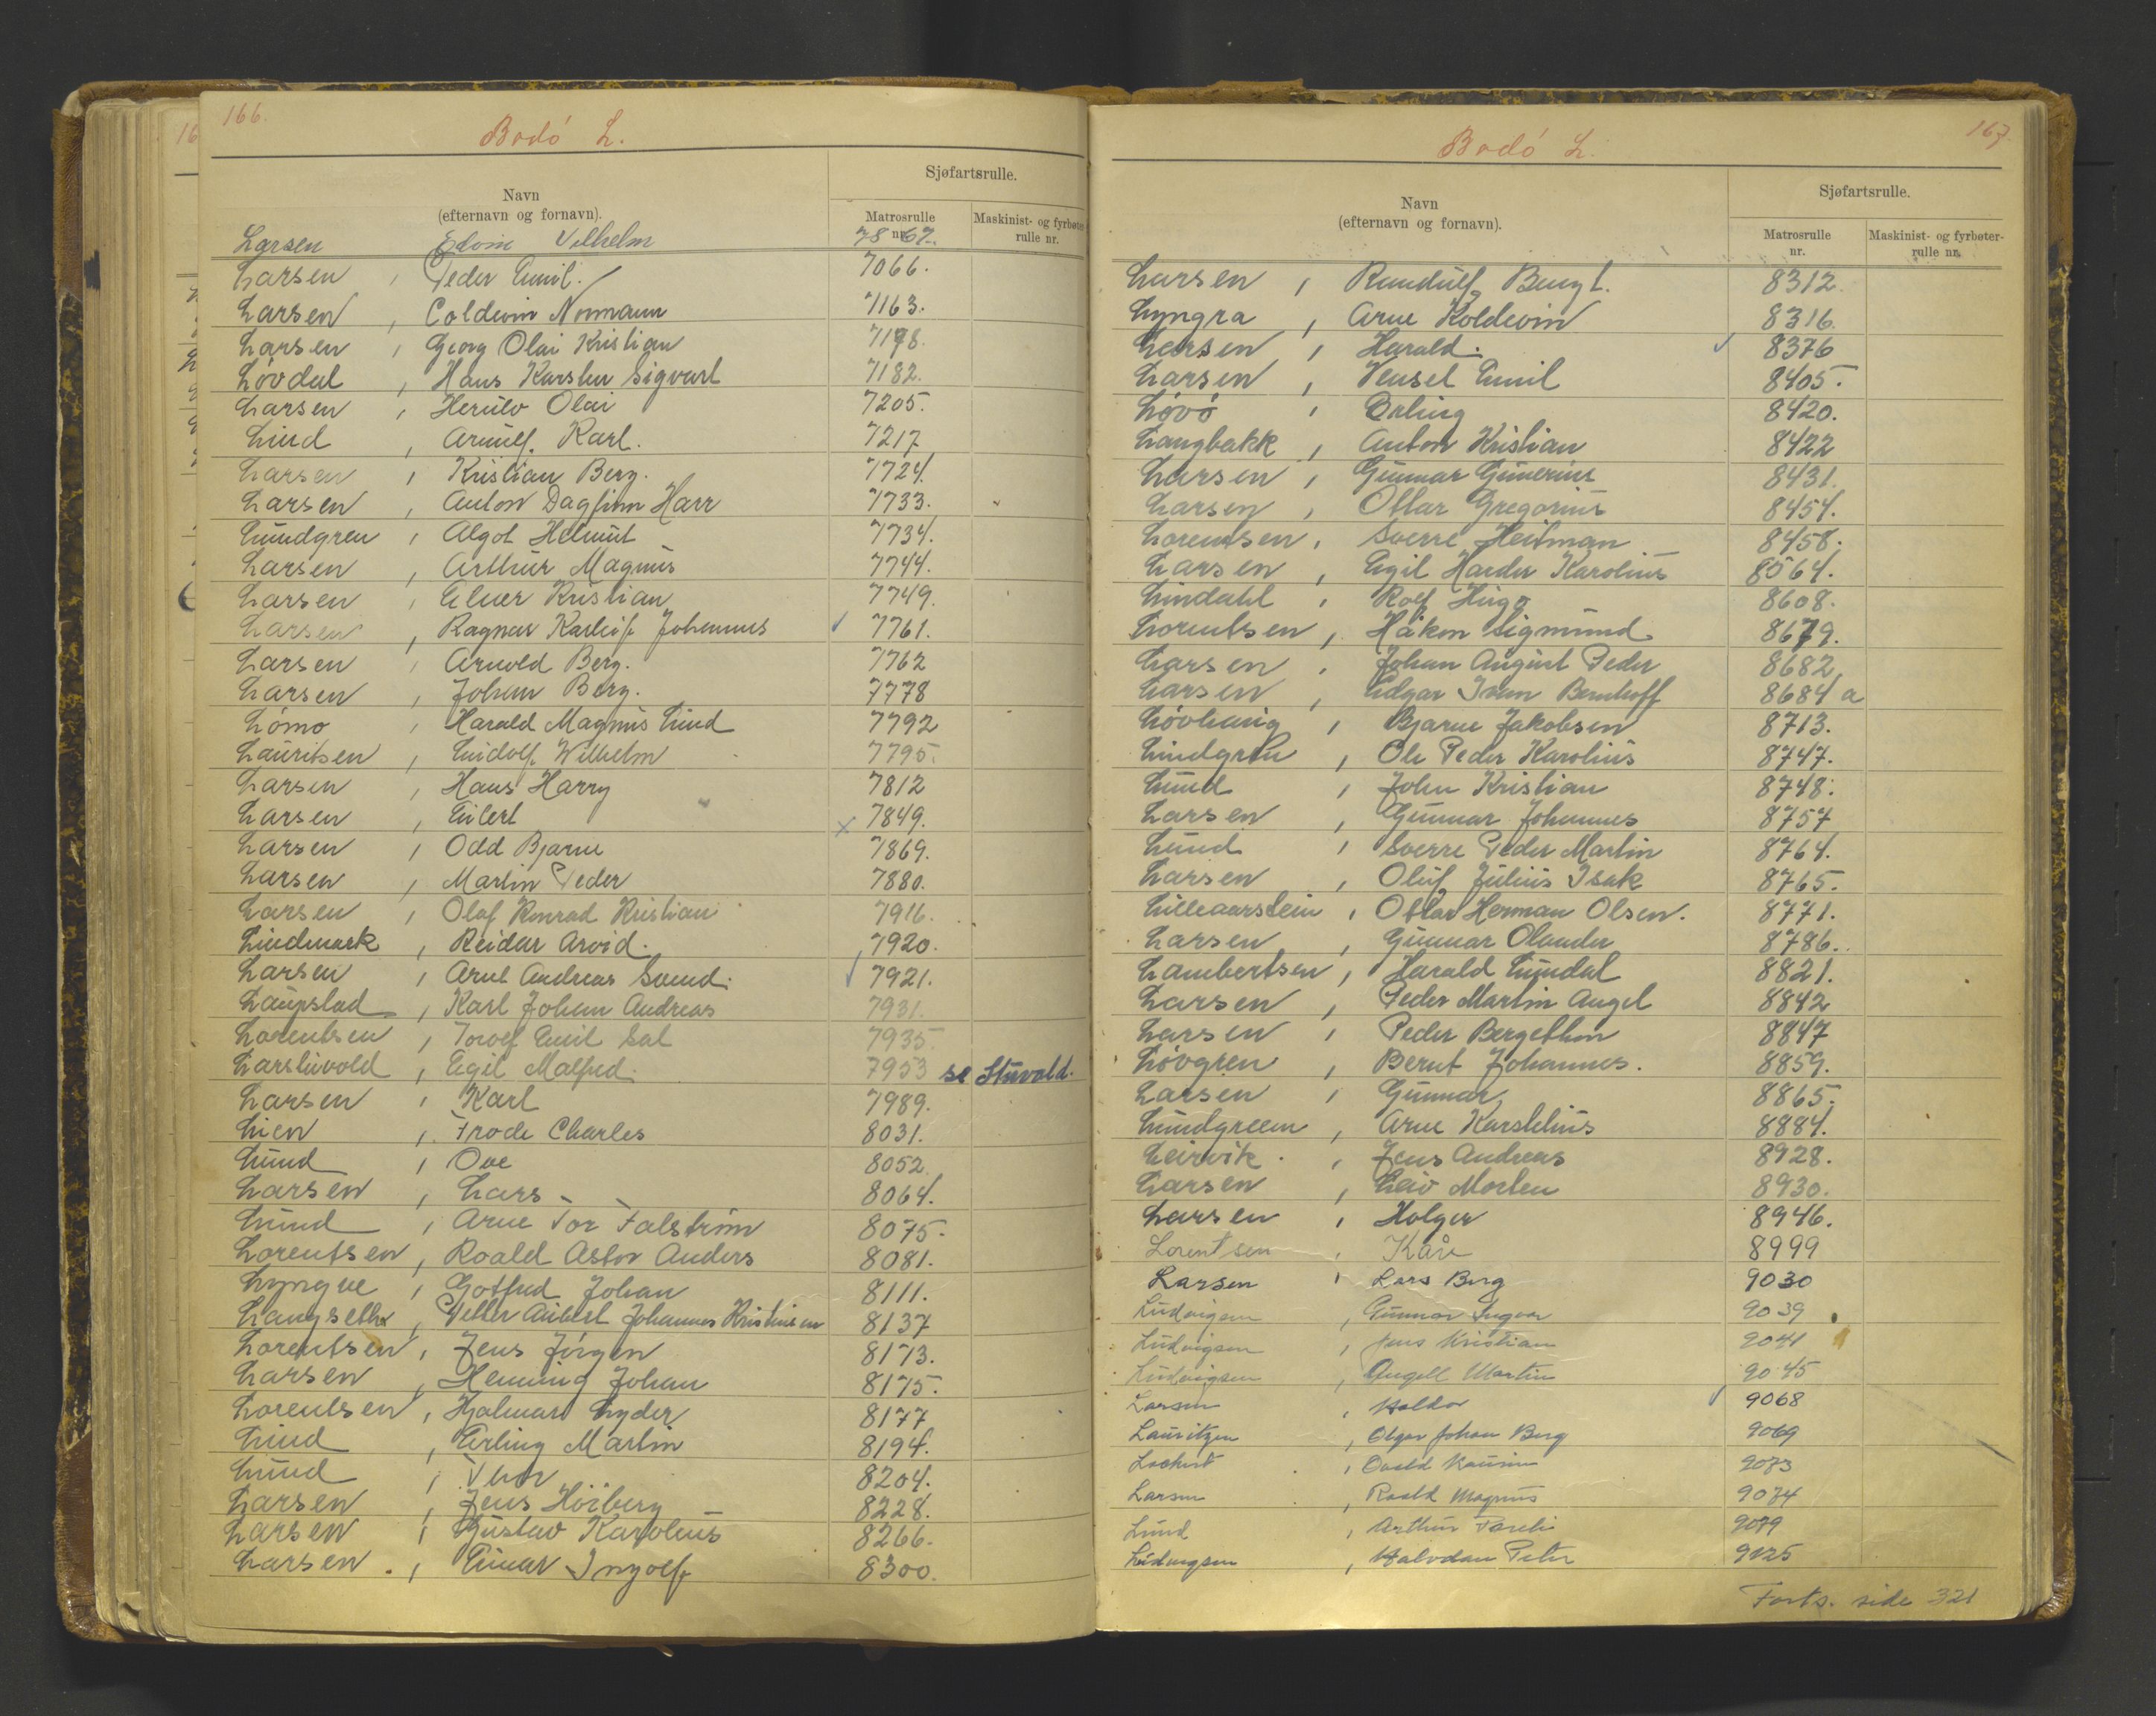 166.
Bodó L.
Navn
(efternavn og fornavn).
Sjøfartsrulle.
Matrosrulle
nr.
Maskinist- og fyrbøter-
rulle nr.
Larsen Edvin Vilhelm 7867.
Larsen , Peder Emil. 7066.
Larsen , Coldevin Normann 7163.
Larsen , Georg Olai Kristian 7178.
Lóvdal , Hans Karsten Sigvart 7182.
Larsen , Herulv Olai 7205.
Lind , Arnulf Karl. 7217
Larsen , Kristian Berg. 7724.
Larsen , Anton Dagfinn Harr 7733.
Lundgren , Algot Helmut 7734.
Larsen , Arthur Magnus 7744.
Larsen , Elver Kristian 7749.
Larsen , Ragnar Karleif Johannes 7761.
Larsen , Arnold Berg. 7762
Larsen , Johan Berg. 7778
Lómo , Harald Magnus Lund 7792
Lauritsen , Lindolf Wilhelm 7795.
Larsen , Hans Harry 7812
Larsen , Eilert 7849.
Larsen , Odd Bjarne 7869.
Larsen , Martin Peder 7880.
Larsen , Olaf Konrad Kristian 7916.
Lindmark , Reidar Arvid. 7920.
Larsen , Arne Andreas Svend. 7921.
Laupstad , Karl Johan Andreas 7931.
Lorentsen , Torolf Emil Sal 7935.
Larsluvold , Egil Malfred. 7953 se Stuvold.
Larsen , Karl 7989.
Lien , Frode Charles 8031.
Lund , Ove 8052.
Larsen , Lars 8064.
Lund , Arne Tor Falstrøm 8075.
Lorentsen , Roald Astor Anders 8081.
Lyngve , Gotfred Johan 8111.
Langseth , Petter Aibert Johannes Kristinsen 8137
Lorentsen , Jens Jórgen 8173.
Larsen , Henning Johan 8175.
Lorentsen , Hjalmar Lyder 8177
Lind , Erling Martin 8194.
Lund , Ivar 8204.
Larsen , Jens Hóiberg 8228.
Larsen , Gustav Karolius 8266.
Larsen , Einar Ingolf 8300.
167.
Bodó L.
Navn
(efternavn og fornavn).
Sjøfartsrulle.
Matrosrulle
nr.
Maskinist- og fyrbøter-
rulle nr.
Larsen , Randulf Bengt. 8312.
Lyngra , Arne Koldevin 8316.
Larsen , Harald. 8376
Larsen , Vensel Emil 8405.
Lóvó , Erling 8420.
Langbakk , Anton Kristian 8422
Larsen , Gunnar Gunerius 8431.
Larsen , Ottar Gregorius 8454.
Lorentsen , Sverre Heitman 8458.
Larsen , Egil Harder Karolius 8564.
Lindahl , Rolf Hugo 8608.
Lorentsen , Håkon Sigmund 8679.
Larsen , Johan August Peder 8682
Larsen , Edgar Ivan Bernhoff 8684 a
Lóvhaug , Bjarne Jakobsen 8713.
Lindgren , Ole Peder Karolius 8747.
Lund , John Kristian 8748.
Larsen , Gunnar Johannes 8757
Lund , Sverre Peder Martin 8764.
Larsen , Oluf Julius Isak 8765.
Lilleaarstein , Ottar Herman Olsen. 8771.
Larsen , Gunnar Olander 8786.
Lambertsen , Harald Lundal 8821.
Larsen , Peder Martin Angel 8842
Larsen , Peder Bergethon 8847
Lóvgren , Bernt Johannes. 8859.
Larsen , Gunnar 8865.
Lundgreen , Arne Karstelius 8884.
Leirvik , Jens Andreas 8928.
Larsen , Leiv Morten 8930.
Larsen , Holger 8946.
Lorentsen , Kåre 8999
Larsen , Lars Berg 9030
Ludvigsen , Gunnar Ingvar 9039
Ludvigsen , Jens Kristian 9041
Ludvigsen , Angell Martin 9045
Larsen , Haldor 9068
Lauritzen , Olger Johan Berg 9069
Lockert , Osvald 9073
Larsen , Roald Magnus 9074
Lund , Arthur Pareli 9079
Ludvigsen , Halvdan Peter 9125
Forts. side 321